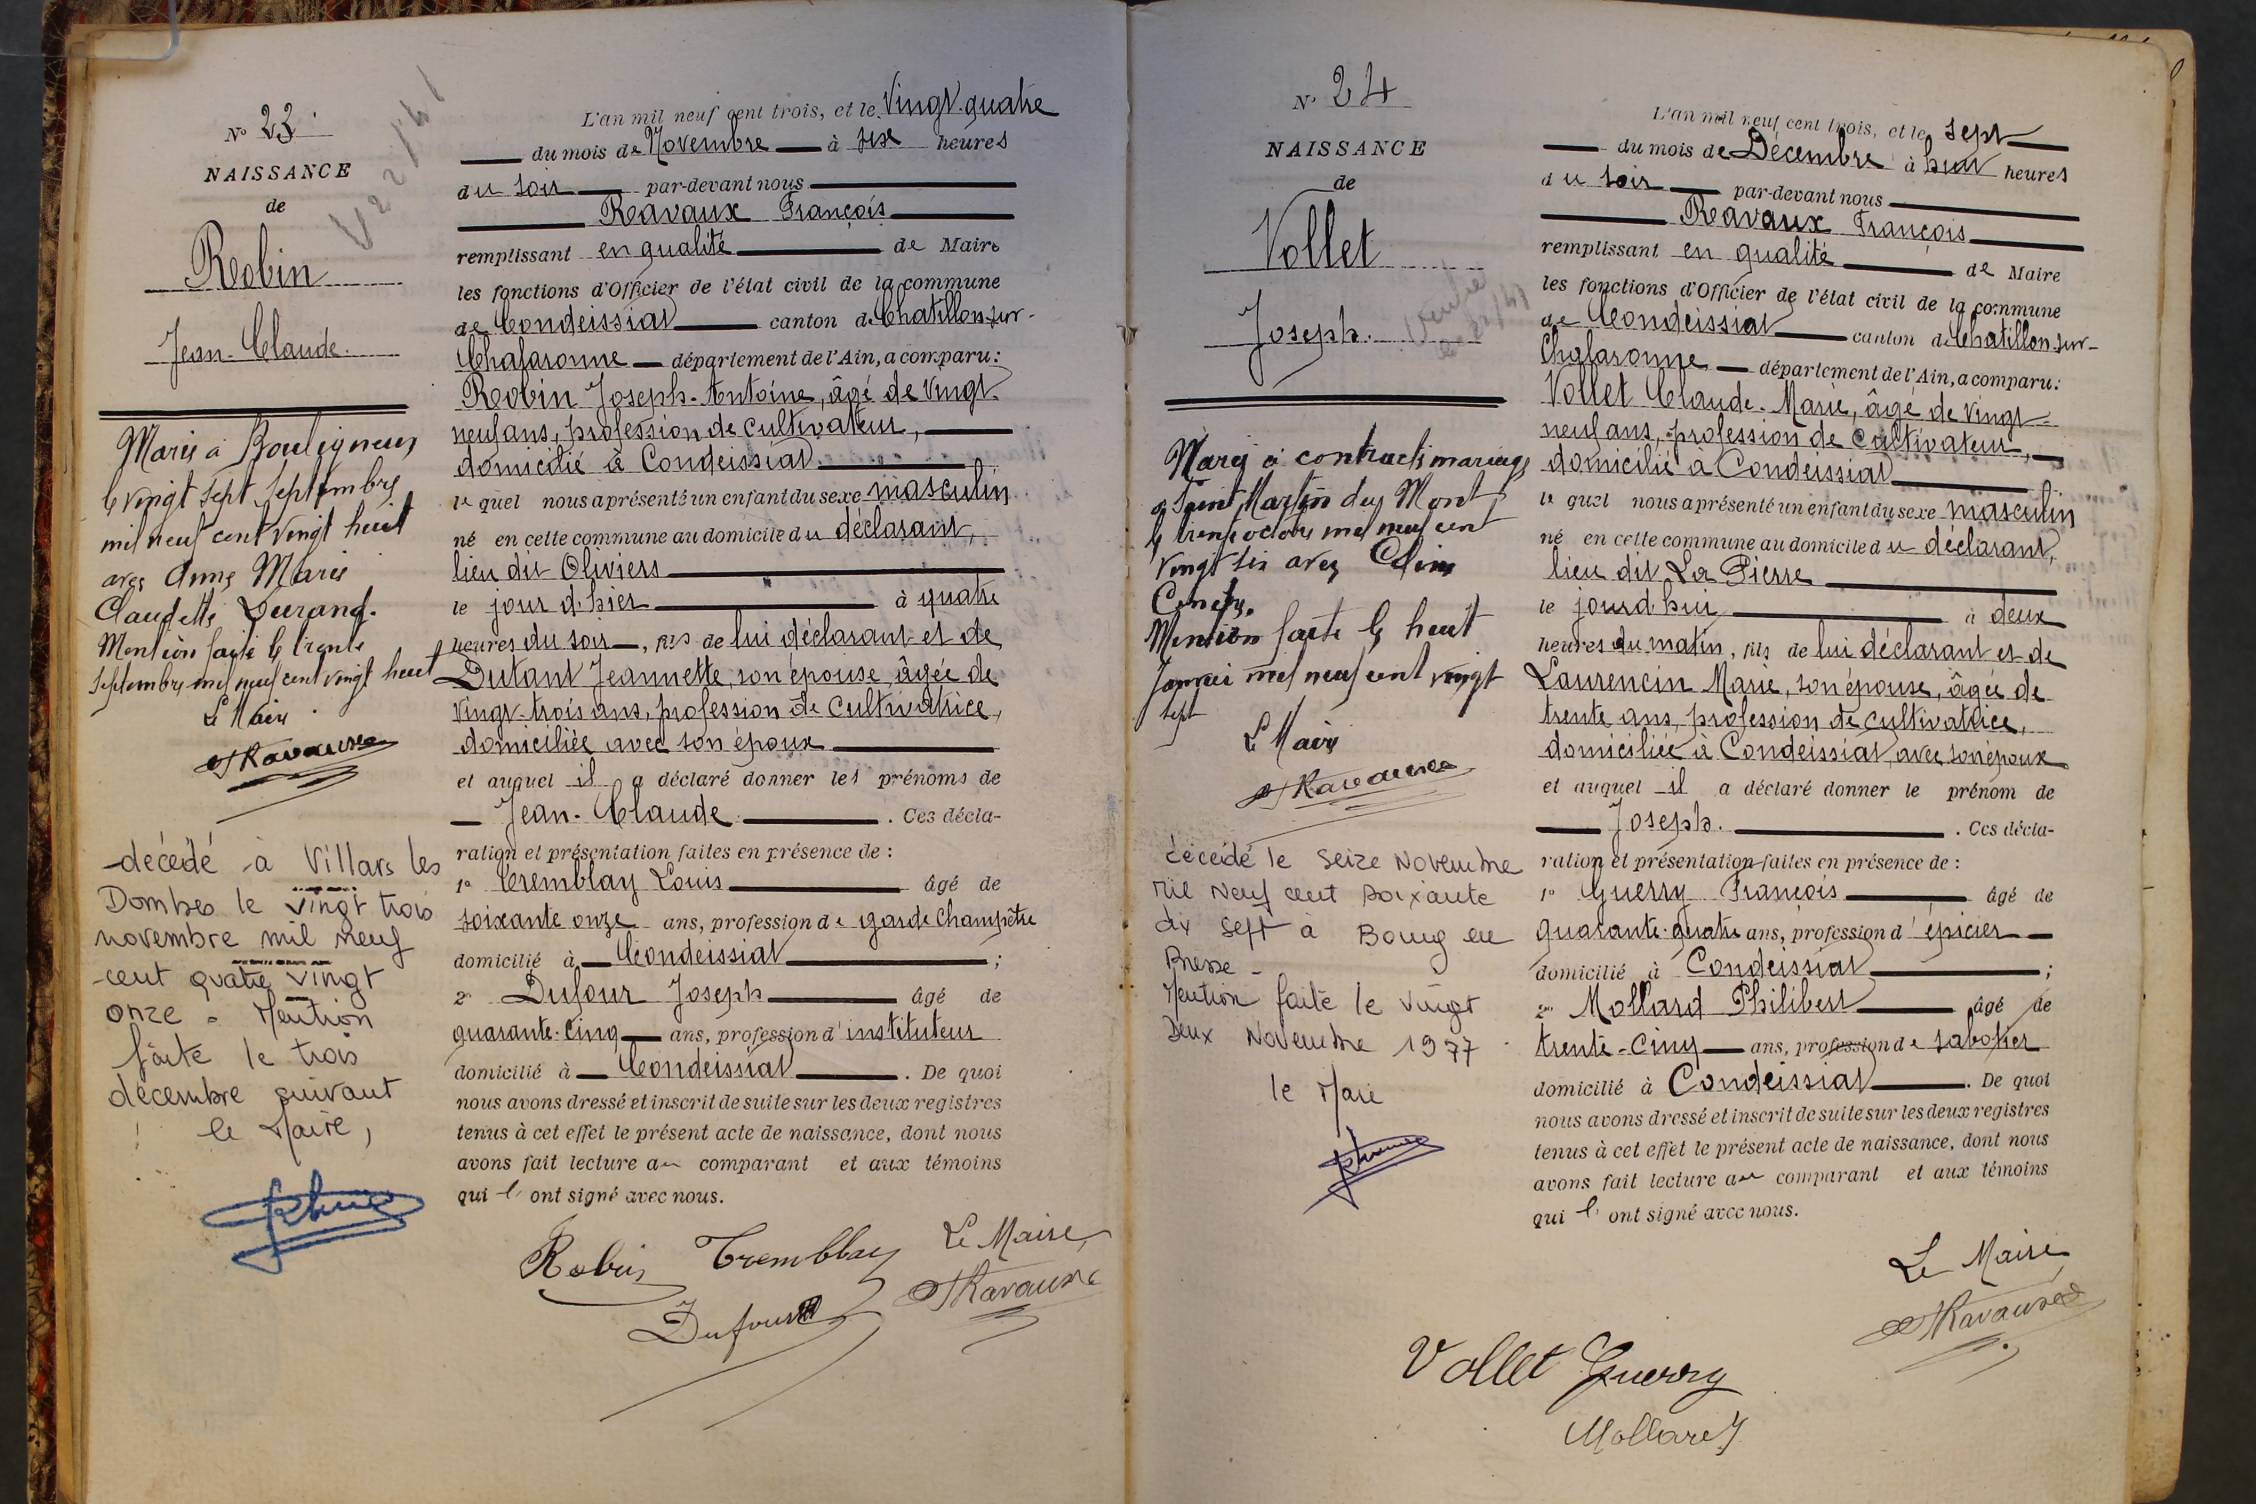 N° 23
NAISSANCE
de
Robin
Jean-Claude.
Marié à Bouligneux
le vingt sept septembre
mil neuf cent vingt huit
avec Anne Marie
Claudette Durand.
Mention faite le trente
septembre mil neuf cent vingt huit
Le Maire
Ravaux
décédé à Villars les
Dombes le vingt trois
novembre mil neuf
cent quatre vingt
onze - Mention
faite le trois
décembre suivant
le Maire,
L'an mil neuf cent trois, et le Vingt-quatre
du mois de Novembre à six heures
du soir par-devant nous
Ravaux François
remplissant en qualité de Maire
les fonctions d'Officier de l'état civil de la commune
de Condeissiat canton de Chatillon-sur-
Chalaronne département de l'Ain, a comparu:
Robin Joseph-Antoine, âgé de vingt-
neuf ans, profession de cultivateur,
domicilié à Condeissiat.
lequel nous a présenté un enfant du sexe masculin
né en cette commune au domicile du déclarant,
lieu dit Oliviers
le jour d'hier à quatre
heures du soir, fils de lui déclarant et de
Dutant Jeannette, son épouse, âgée de
vingt-trois ans, profession de cultivatrice,
domiciliée avec son époux
et auquel il a déclaré donner les prénoms de
Jean-Claude. Ces décla-
ration et présentation faites en présence de:
1° Tremblay Louis âgé de
soixante onze ans, profession de garde champêtre
domicilié à Condeissiat;
2° Dufour Joseph âgé de
quarante-cinq ans, profession d'instituteur
domicilié à Condeissiat. De quoi
nous avons dressé et inscrit de suite sur les deux registres
tenus à cet effet le présent acte de naissance, dont nous
avons fait lecture au comparant et aux témoins
qui l'ont signé avec nous.
Robin Tremblay Le Maire,
Dufour Ravaux
N° 24
NAISSANCE
de
Vollet
Joseph.
Marié à contracté mariage
à Saint Martin du Mont
le trente octobre mil neuf cent
vingt six avec
Mention faite le huit
Janvier mil neuf cent vingt
sept
Le Maire
Ravaux
décédé le seize Novembre
mil neuf cent soixante
dix sept à Bourg en
Bresse -
Mention faite le vingt
Deux Novembre 1977
le Maire
L'an mil neuf cent trois, et le sept
du mois de Décembre à huit heures
du soir par-devant nous
Ravaux François
remplissant en qualité de Maire
les fonctions d'Officier de l'état civil de la commune
de Condeissiat canton de Chatillon-sur-
Chalaronne département de l'Ain, a comparu:
Vollet Claude-Marie, âgé de vingt-
neuf ans, profession de cultivateur,
domicilié à Condeissiat
lequel nous a présenté un enfant du sexe masculin
né en cette commune au domicile du déclarant,
lieu dit La Pierre
le jourd'hui à deux
heures du matin, fils de lui déclarant et de
Laurencin Marie, son épouse, âgée de
trente ans, profession de cultivatrice,
domiciliée à Condeissiat, avec son époux
et auquel il a déclaré donner le prénom de
Joseph. Ces décla-
ration et présentation faites en présence de:
1° Guerry François âgé de
quarante-quatre ans, profession d'épicier
domicilié à Condeissiat;
2° Mollard Philibert âgé de
trente-cinq ans, profession de sabotier
domicilié à Condeissiat. De quoi
nous avons dressé et inscrit de suite sur les deux registres
tenus à cet effet le présent acte de naissance, dont nous
avons fait lecture au comparant et aux témoins
qui l'ont signé avec nous.
Le Maire
Ravaux
Vollet Guerry
Mollard